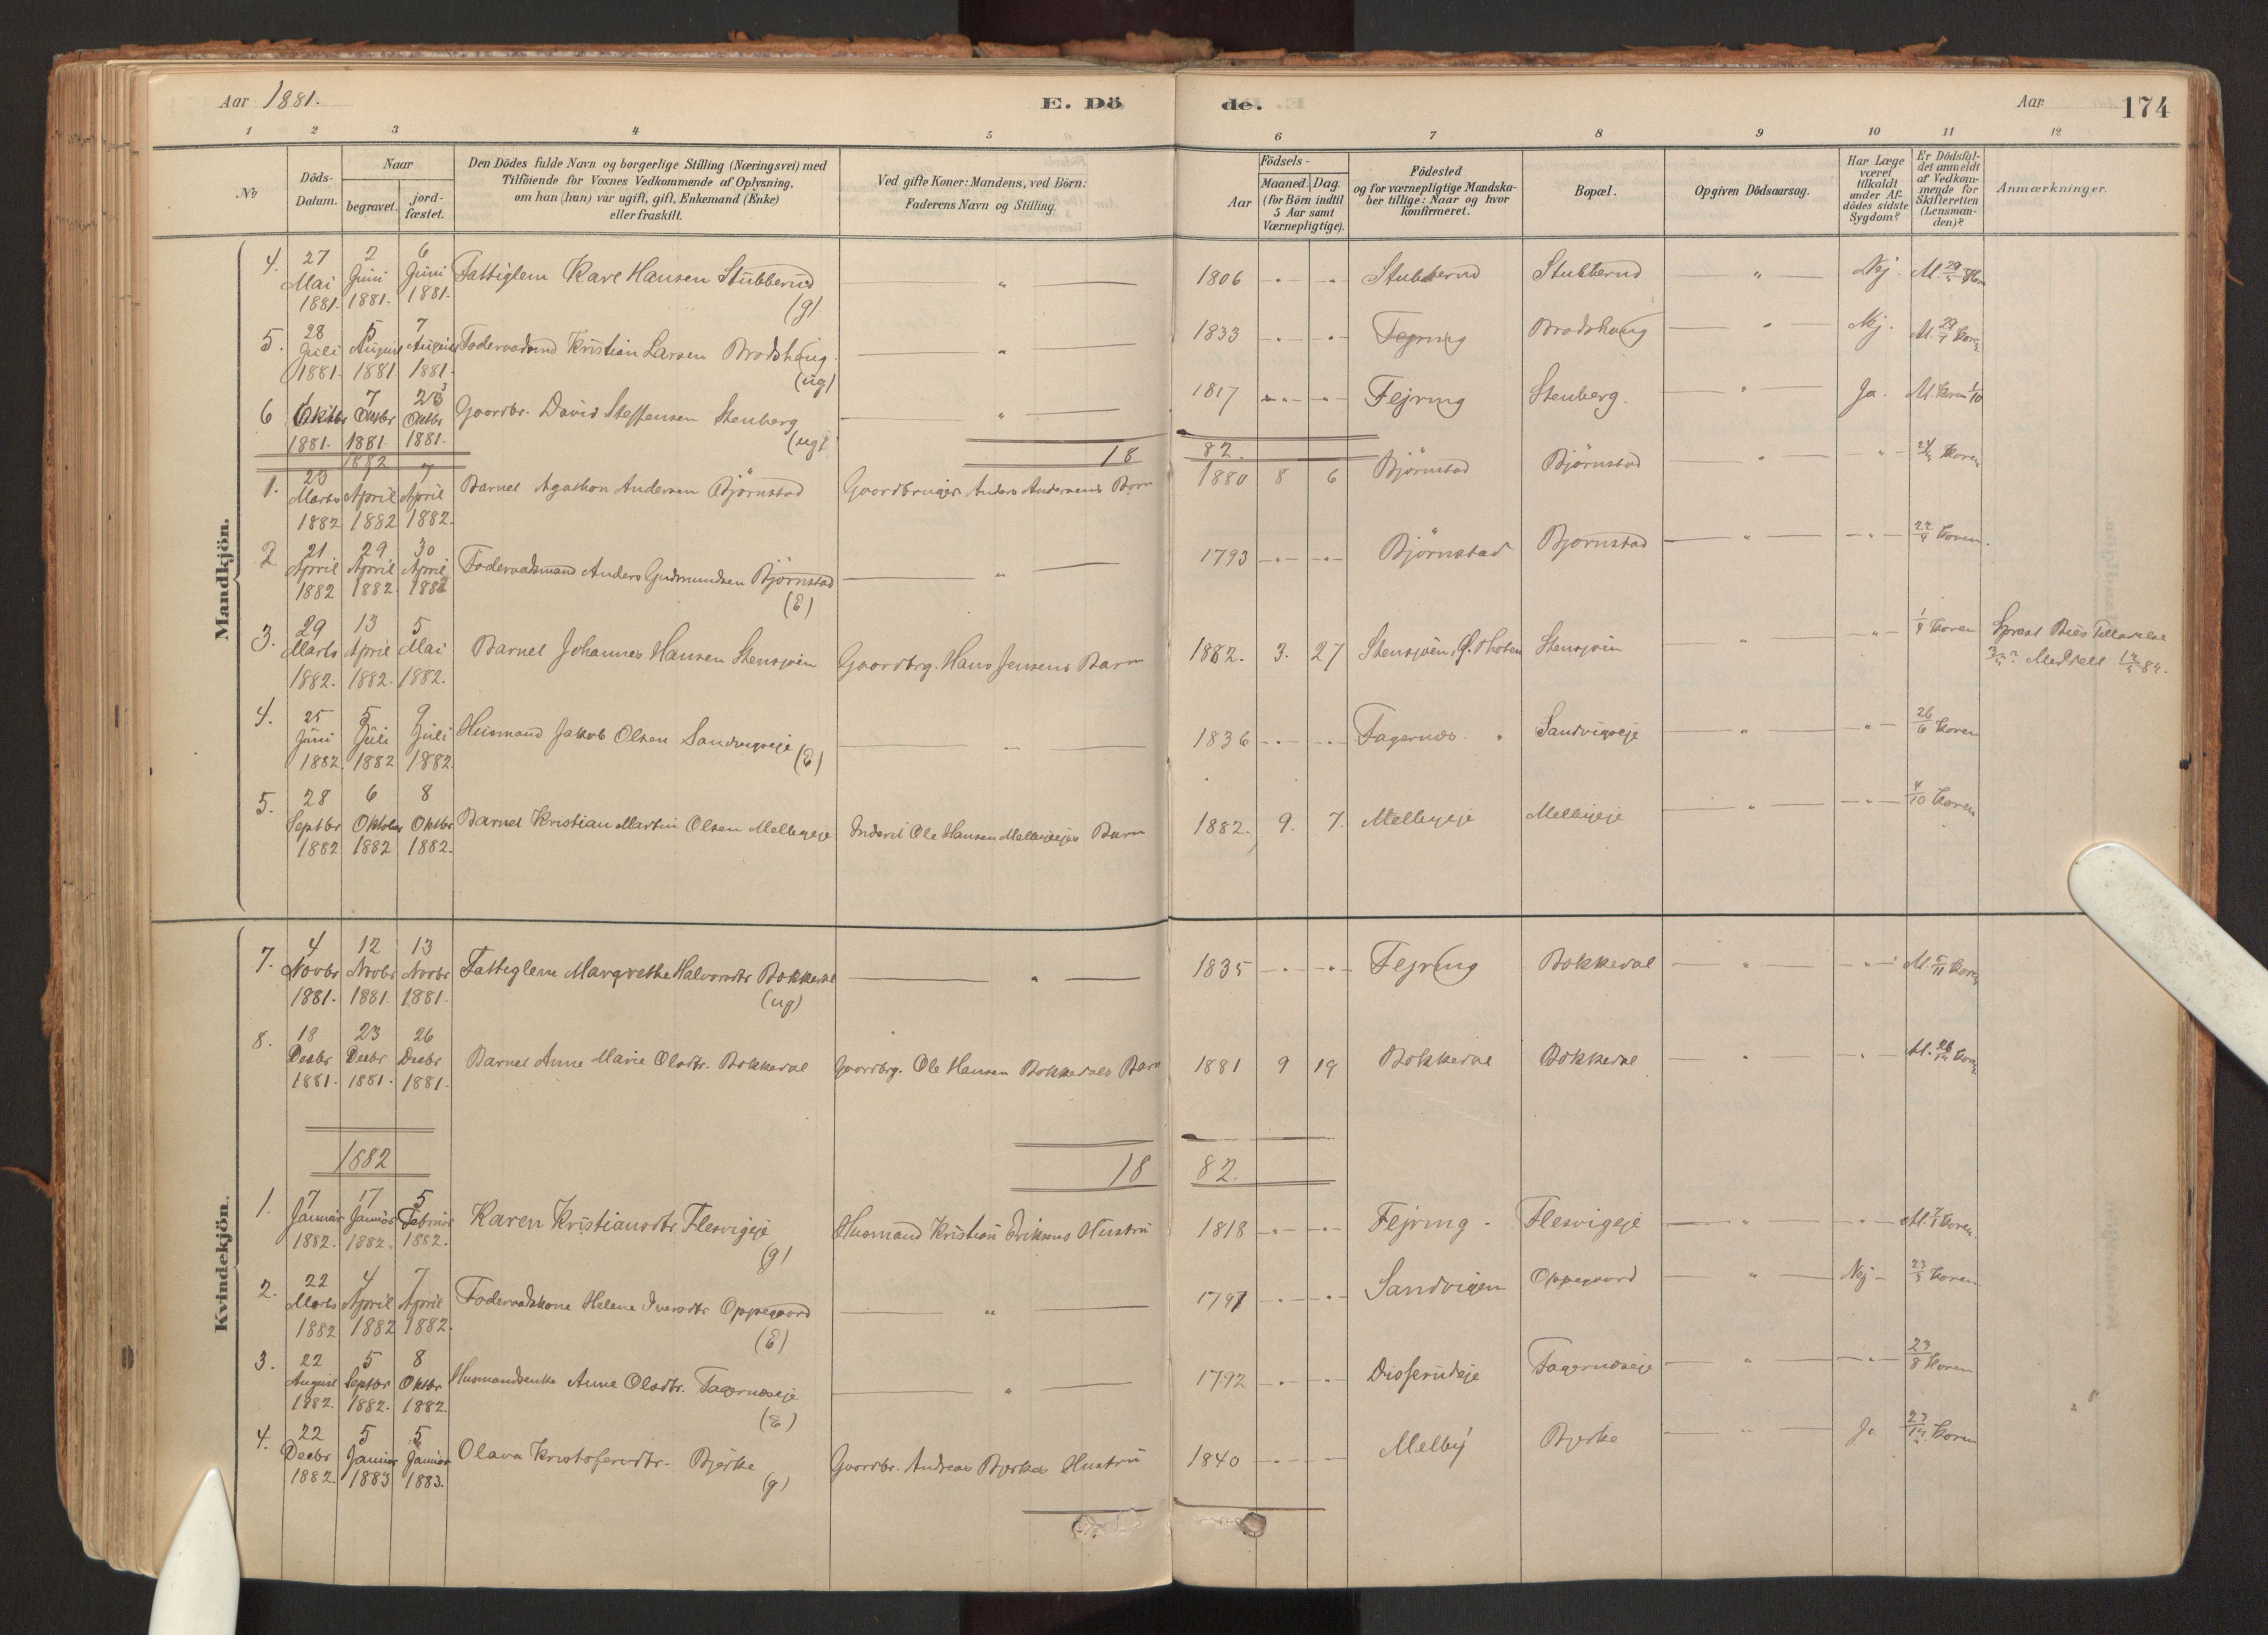 Aar 1881. E. Dö de. Aar 174
1 2 3 4 5 6 7 8 9 10 11 12
No
Döds-Datum.
Naar
begravet.
jord-fæstet.
Den Dödes fulde Navn og borgerlige Stilling (Næringsvei) med
Tilföiende for Voxnes Vedkommende af Oplysning,
om han (hun) var ugift, gift, Enkemand (Enke)
eller fraskilt.
Ved gifte Koner: Mandens, ved Börn:
Faderens Navn og Stilling.
Födsels-
Aar
Maaned. Dag.
(for Börn indtil
5 Aar samt
Værnepligtige).
Födested
og for værnepligtige Mandska-
ber tillige: Naar og hvor
konfirmeret.
Bopæl.
Opgiven Dödsaarsag.
Har Læge
været
tilkaldt
under Af-
dödes sidste
Sygdom?
Er Dödsfal-
det anmeldt
af Vedkom-
mende for
Skifteretten
(Lensman-
den)?
Anmærkninger.
Mandkjön.
4. 27 Mai 1881. 2 Juni 1881. 6 Juni 1881. Fattiglem Karl Hansen Stubberud (g) " 1806 " " Stubberud Stubberud " Nej. M. 29/5
5. 28 Juli 1881. 5 August 1881 7 August 1881. Foderaadsmd Kristian Larsen Brodshaug (ug) " 1833 " " Fejring Brodshaug " Nej. M. 29/7 Koren
6 1 Oktbr 1881. 7 Oktbr 1881 23 Oktbr 1881. Gaardbr. David Steffensen Stenberg (ug) " 1817 " " Fejring Stenberg. " Ja. M. Koren 1/10
1882 18 82.
1. 23 Marts 1882 1 April 1882 7 April 1882. Barnet Agathon Andersen Björnstad Gaardbruger Anders Andersens Barn 1880 8 6 Björnstad Björnstad " " 24/3 Koren
2 21 April 1882 29 April 1882. 30 April 1882 Foderaadsmand Anders Gudmundsen Björnstad (E) " 1793 " " Björnstad Bjornstad " " 22/4 Koren.
3. 29 Marts 1882. 13 April 1882. 5 Mai 1882. Barnet Johannes Hansen Stensjøen Gaardbrg. Hans Jensens Barn 1882. 3. 27 Stensjøen, Ø. Stensjøen " " 1/4 Koren
4. 25 Juni 1882. 5 Juli 1882 9 Juli 1882. Husmand Jakob Olsen Sandvigseje (E) 1836 " " Fagernæs. " Sandvigseje " " 26/6 Koren
5. 28 Septbr 1882 6 Oktober 1882 8 Oktbr 1882. Barnet Kristian Martin Olsen Mellbyeje Inderst Ole Hansen Mellbyejes Barn 1882. 9. 7. Mellbyeje Mellbyeje " " 4/10 Koren
Kvindekjön.
7. 4 Novbr 1881. 12 Novbr 1881. 13 Novbr 1881. Fattiglem Margrethe Halvorsdtr Bokkedal (ug) " 1835 " " Fejring Bokkedal " " M. 5/11 Koren
8. 18 Decbr 1881. 23 Decbr 1881. 26 Decbr 1881. Barnet Anne Marie Olsdtr. Bokkedal Gaardbrg. Ole Hansen Bokkedals Barn 1881 9 19 Bokkedal Bokkedal " " M. Koren
1882 18 82.
1. 7 Januar 1882. 17 Januar 1882. 5 Februar 1882. Karen Kristiansdtr. Flesvigeje (g) Husmand Kristian Eriksens Hustru 1818 " " Fejring. Flesvigeje " " M. 7/1 Koren.
2. 22 Marts 1882 4 April 1882 7 April 1882. Foderaadskone Helene Iversdtr Oppegaard (E) " 1797 " " Sandvigen Oppegaard " Nej 23/3 Koren
3. 22 August 1882. 5 Septbr 1882. 8 Oktbr 1882. Husmandsenke Anne Olsdtr. Fagernæseje (E) " 1792 " " Disserudeje Fagernæseje " " 23/8 Koren
4. 22 Decbr 1882. 5 Januar 1883 5 Januar 1883. Olava Kristofersdtr. Bjerke (g) Gaardbr. Andreas Bjerkes Hustru 1840 " " Melby Bjerke " Ja 23/12 Koren